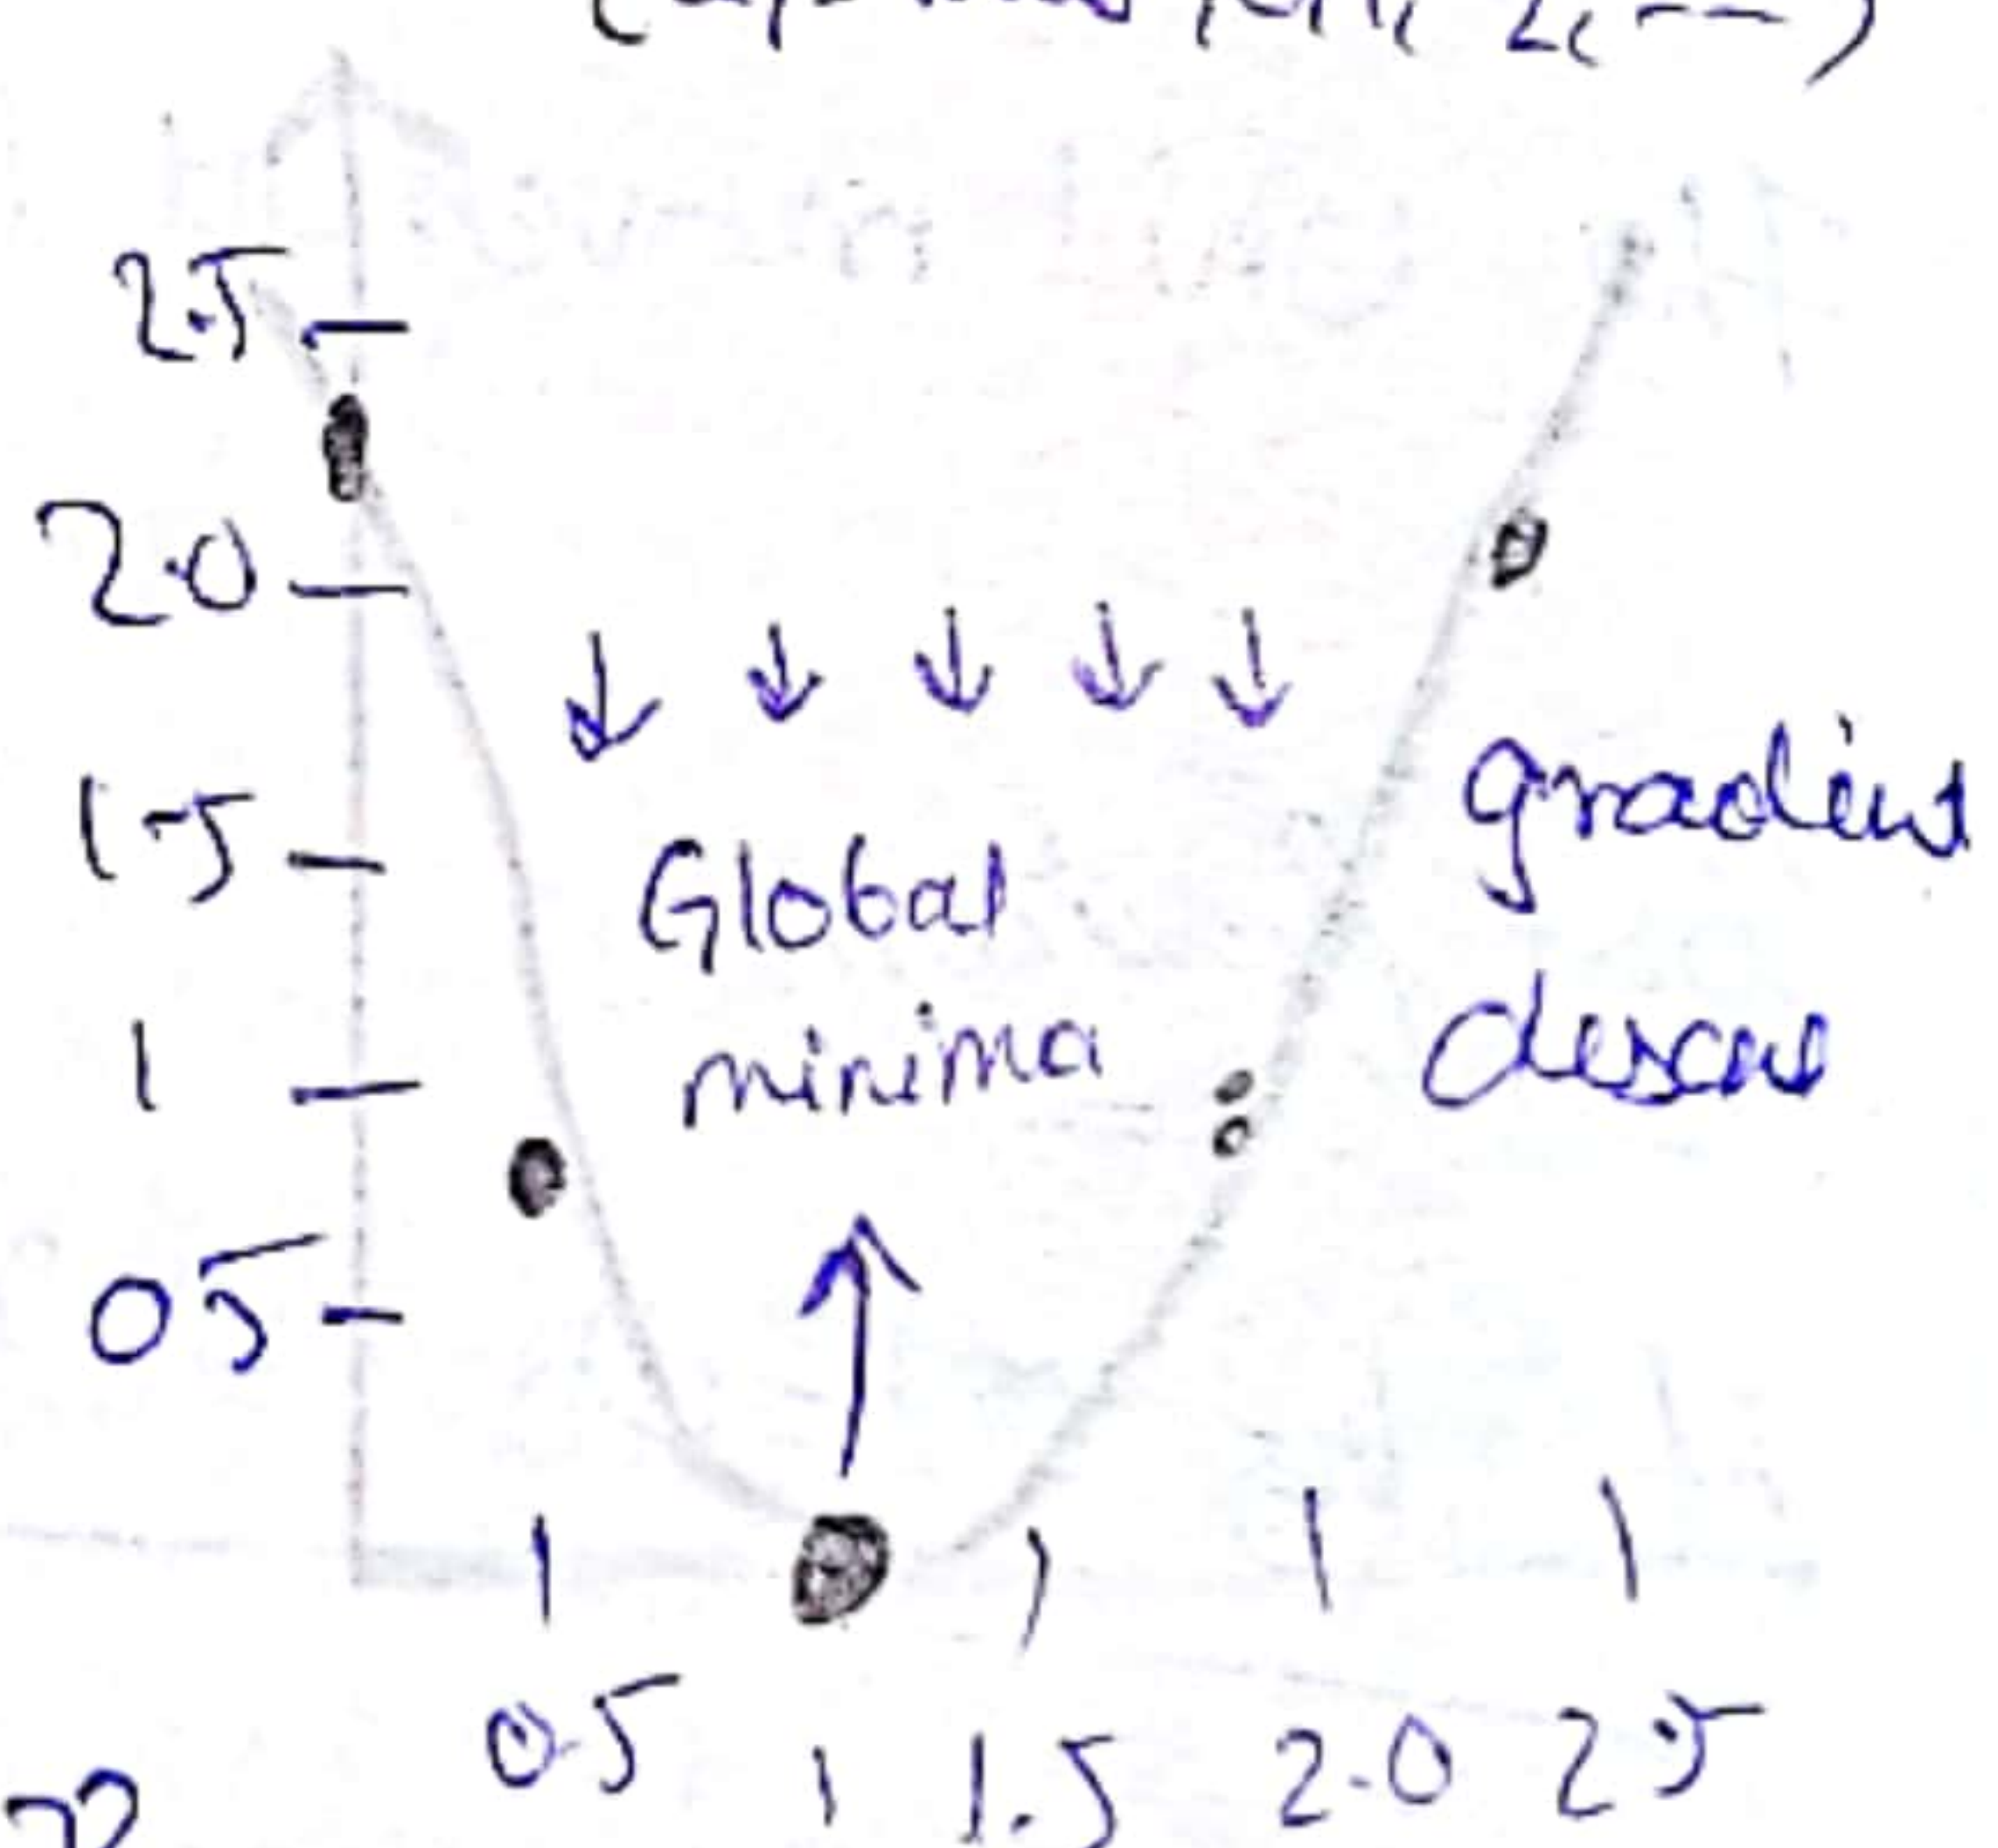 2.5
2.0
1.5
1
0.5
Global
minima
gradient
0.5 1 1.5 2.0 2.5